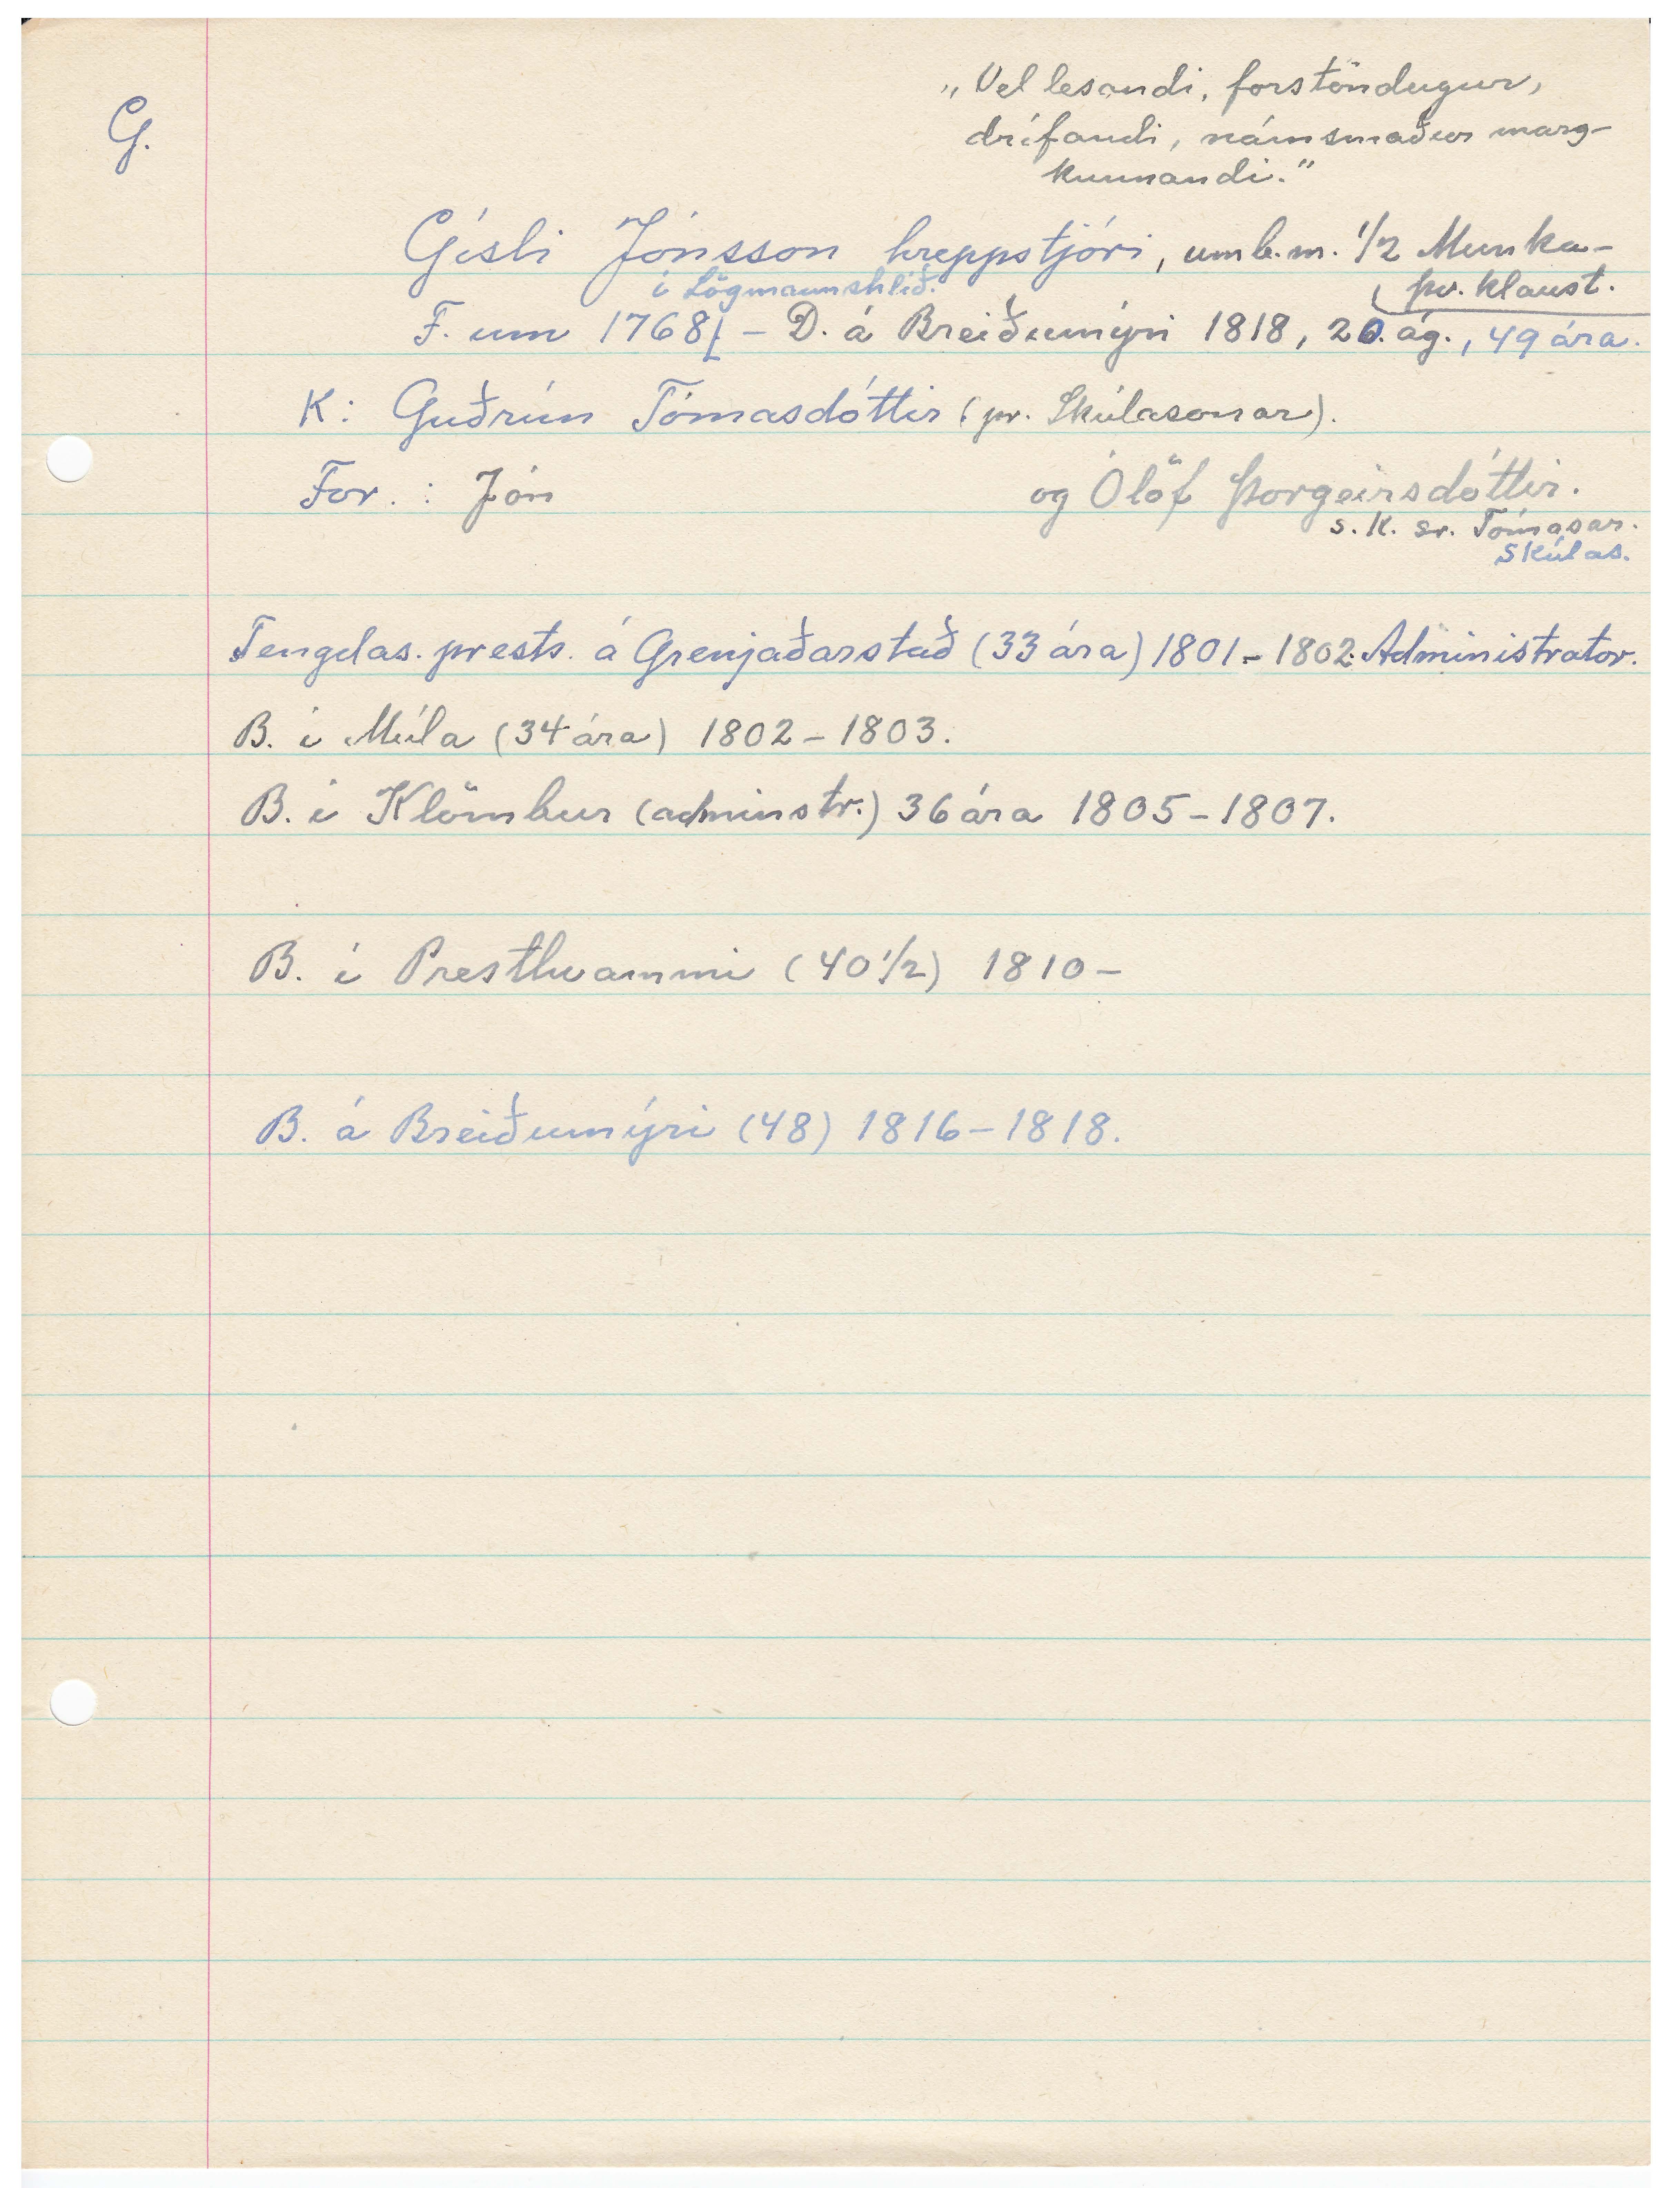 G.
„Vel lesandi, forstöndugur,
drífandi, námsmaður marg-
kunnandi."
Gísli Jónsson hreppstjóri, umb.m. 1/2 Munka-
þv. klaust.
í Lögmannshlíð.
F. um 1768 - D. á Breiðumýri 1818, 20. ág., 49 ára.
K: Guðrún Tómasdóttir (pr. Skúlasonar).
For. : Jón og Ólöf Þorgeirsdóttir.
s. K. sr. Tómasar.
Skúlas.
Tengdas. prests. á Grenjaðarstað (33 ára) 1801 - 1802. Administrator.
B. í Múla (34 ára) 1802 - 1803.
B. í Klömbur (adminstr.) 36 ára 1805 - 1807.
B. í Presthvammi (40 1/2) 1810 -
B. á Breiðumýri (48) 1816 - 1818.